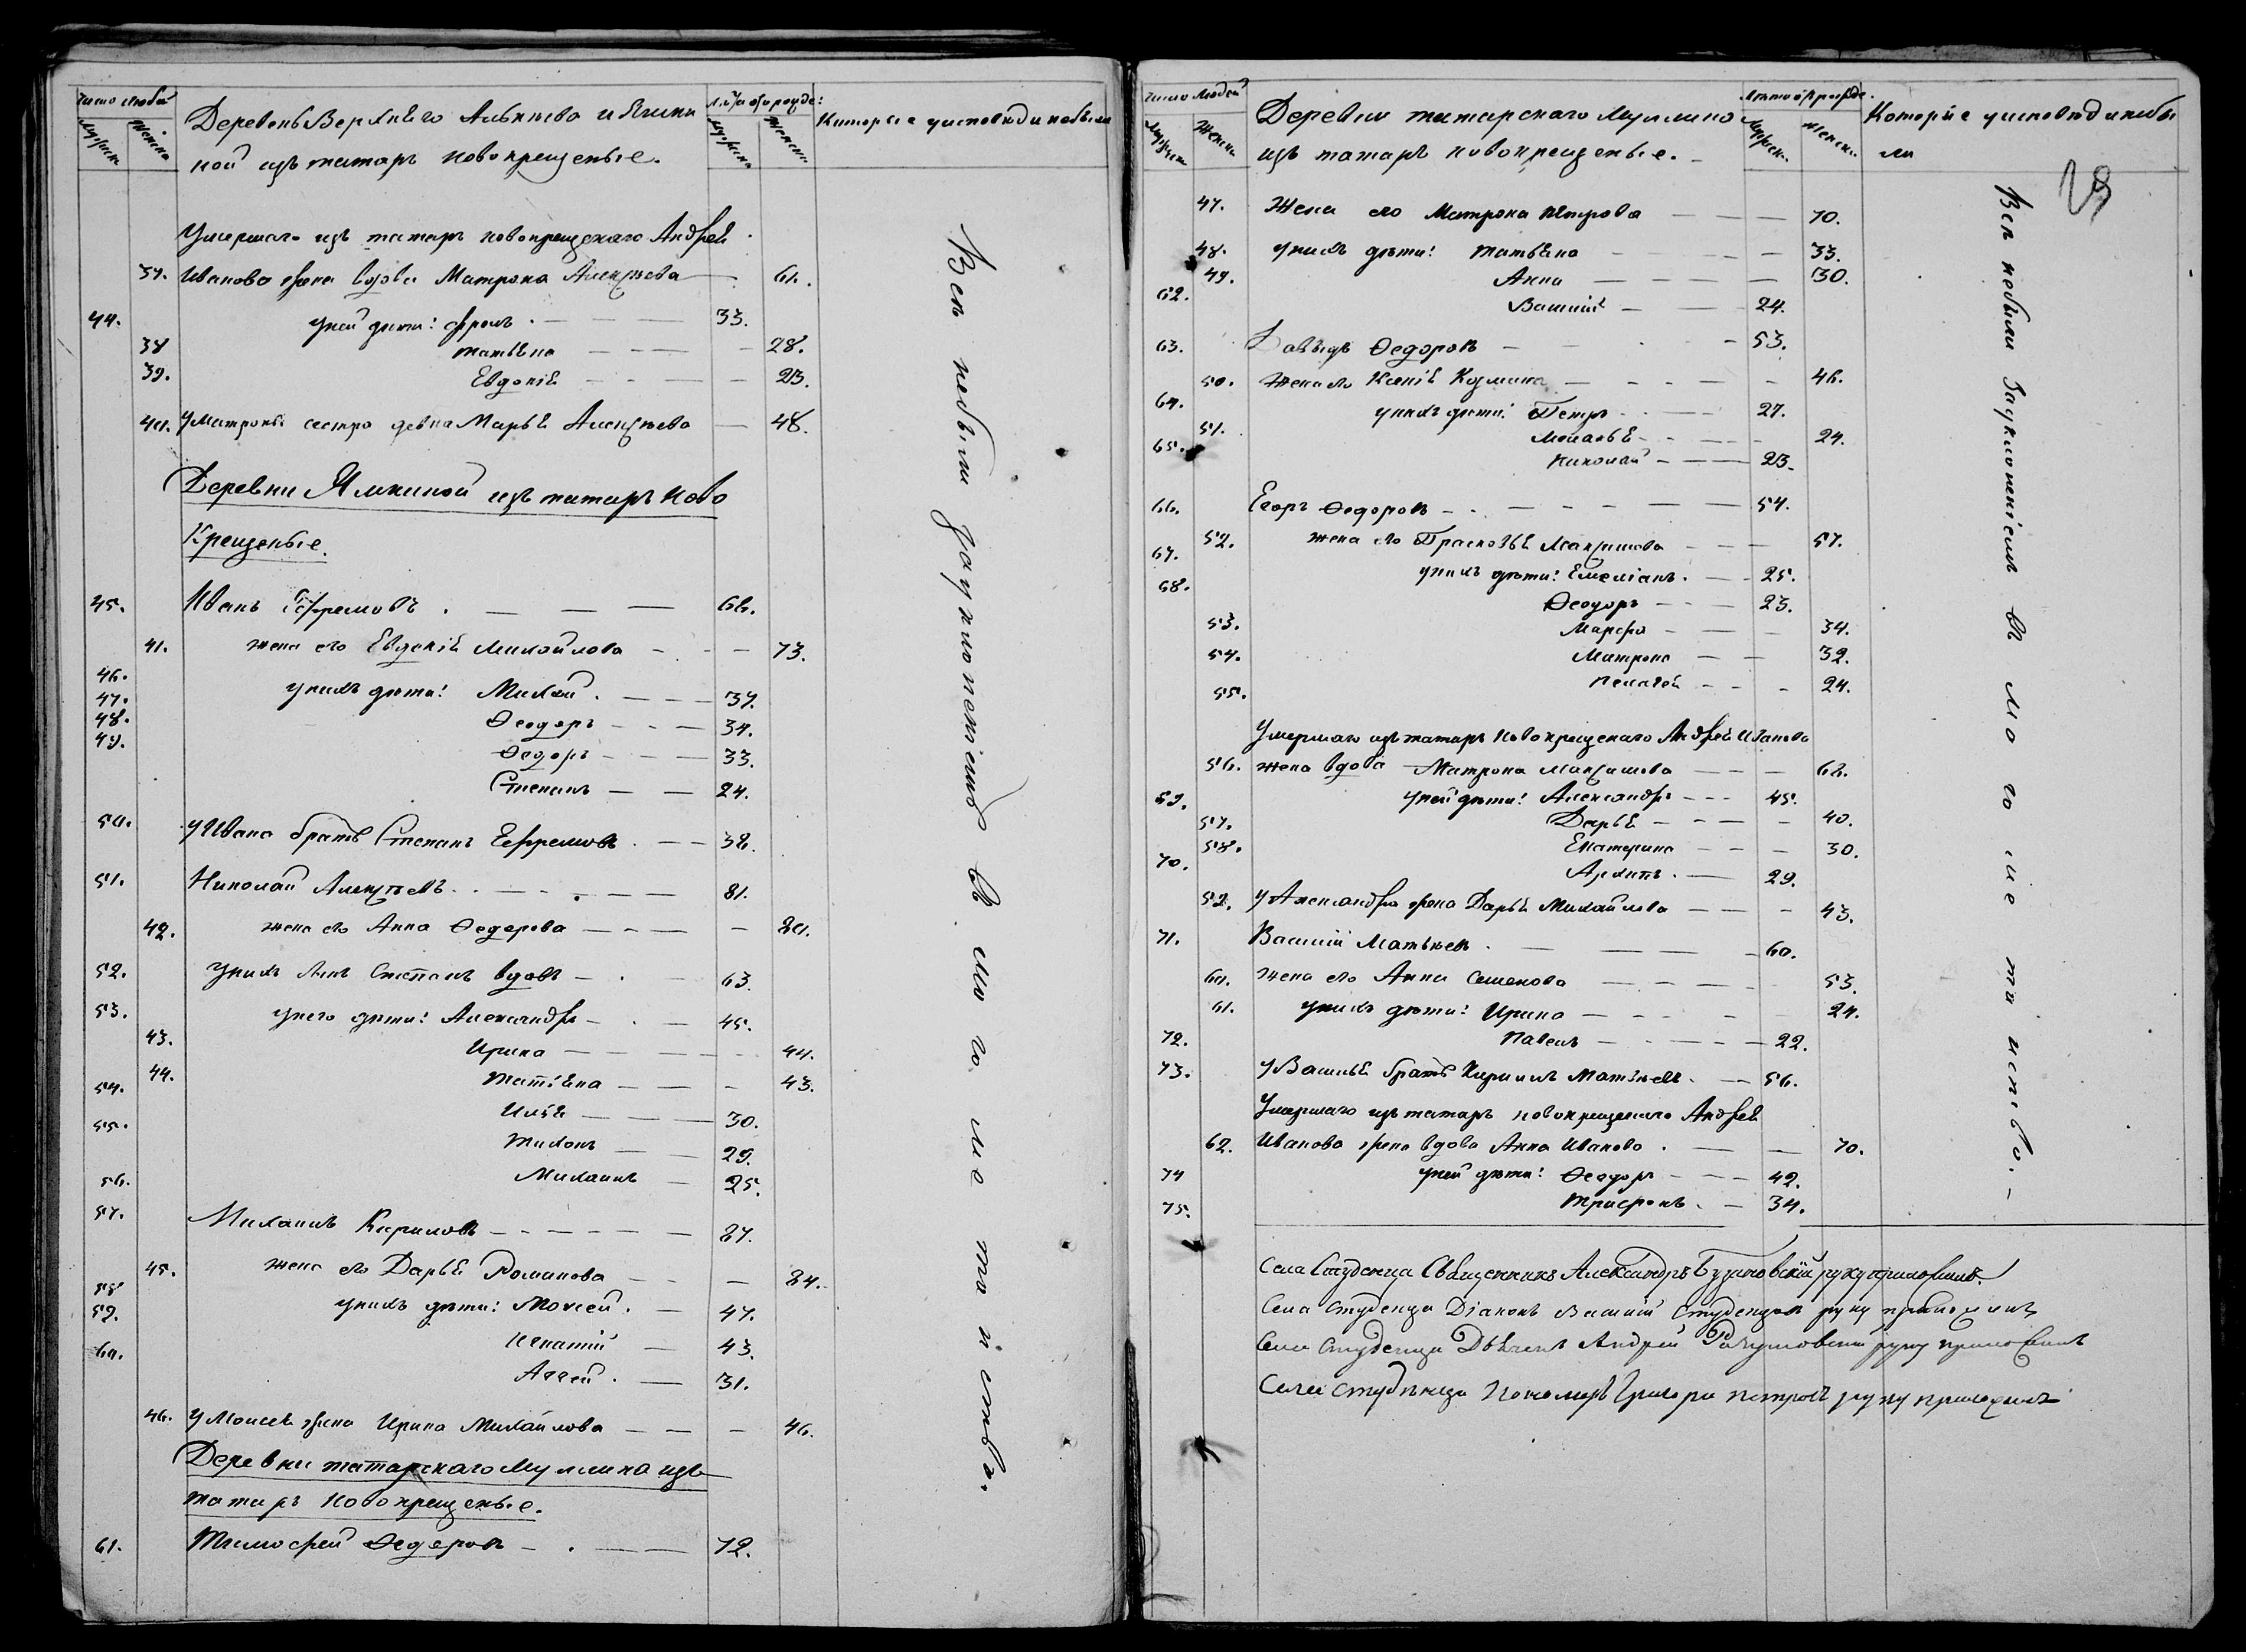 Число людей
Мужеск. Женска.
Деревень Верхнѣго и
ной изъ татаръ новокрещеные.
Лѣта отъ рожде:
Мужеск. Женск.
Которые у исповѣди небыли
Умершаго изъ татаръ новокрещенаго Андрея
37. Иванова жена вдова Матрона Алексѣева — 61.
44. у ней дѣти: Фролъ . — — — 33.
38 татьяна — — — — 28.
39. Евдокія — — — 23.
40. У Матроны сестра девка Марья Алексѣева — 48.
Деревни Ямкиной изъ татаръ ново
Крещеные.
45. Иванъ Ефремовъ . — — — 66.
41. жена его Евдокія Михайлова — — — 73.
46. у нихъ дѣти: Михай . — — — 37.
47. Ѳеодоръ — — — 34.
48. Ѳедоръ — — — 33.
49. Степанъ — — 24.
50. У Ивана братъ Степанъ Ефремовъ . — — 38.
51. Николай Алексѣевъ . . — — . — — — 81.
42. жена его Анна Ѳедорова — — — — 80.
52. у нихъ сынъ Степанъ вдовъ — . — 63.
53. у него дѣти: Александръ — . — 45.
43. Ирина — — — — — 44.
44. Татіяна — — — 43.
54. Илья — — — 30.
55. Тихонъ — — 29.
56. Михаилъ — 25.
57. Михаилъ Кириловъ — — — — — — 87.
45. жена его Дарья Романова — — — 84.
58 у нихъ дѣти: Моисей . — 47.
59. Игнатій — 43.
60. Алѣей . — 31.
46. У Моисея жена Ирина Михайлова — — — 46.
Деревни татарскаго Муллина изъ
татаръ новокрещеные.
61. Тимофей Ѳедоровъ — . — — 72.
Всѣ небыли за уклоненіемъ въ могометанство.
Число людей
Мужеск. Женска.
Деревни татарскаго Муллино
изъ татаръ новокрещеные. —
Лѣта отъ рожде.
Мужеск. Женск.
Которые у исповѣди небы
ли
47. Жена его Матрона Петрова — — — 70.
48. у нихъ дѣти: татьяна — — — — 33.
49. Анна — — — — 30.
62. Василій — — 24.
63. Давыдъ Ѳедоровъ — — — 53.
50. Жена его Ксенія Козмина — — — — 46.
64. у нихъ дѣти: Петръ — — 27.
51. — — — 24.
65. Николай — — — 23.
66. Егоръ Ѳедоровъ — . — — — — — 54.
52. жена его Прасковья Максимова — — — 57.
67. у нихъ дѣти: Емеліанъ . — — 25.
68. Ѳеодоръ — — — 23.
53. Марфа — — — 34.
54. Матрона — — 32.
55. Пелагея — — — 24.
Умершаго изъ татаръ новокрещенаго Андрея Иванова
56. жена вдова Матрона Максимова — — — 62.
69. у ней дѣти: Александръ — — — 45.
57. Дарья — — — — 40.
58. Екатерина — — — 30.
70. Архипъ . — 29.
59. У Александра жена Дарья Михайлова — — — 43.
71. Василій Матвѣевъ . — — — 60.
60. жена его Анна Семенова — — — — 53.
61. у нихъ дѣти: Ирина — — — — 24.
72. Павелъ — — — — 22.
73. У Василья братъ Кирилъ Матвѣевъ . — — 56.
Умершаго изъ татаръ новокрещенаго Андрея
62. Иванова жена вдова Анна Иванова . — — 70.
74 у ней дѣти: Ѳеодоръ — — — 42.
75. Трифонъ . — 34.
Всѣ небыли за уклоненіемъ въ могометанство. —
Села Студенца Священникъ Александръ Бузановскій руку приложилъ.
Села Студенца Діаконъ Василій Студенцовъ руку приложилъ
Села Студенца Дьячекъ Андрей руку приложилъ
Села Студенца Пономарь Григори Петровъ руку приложилъ